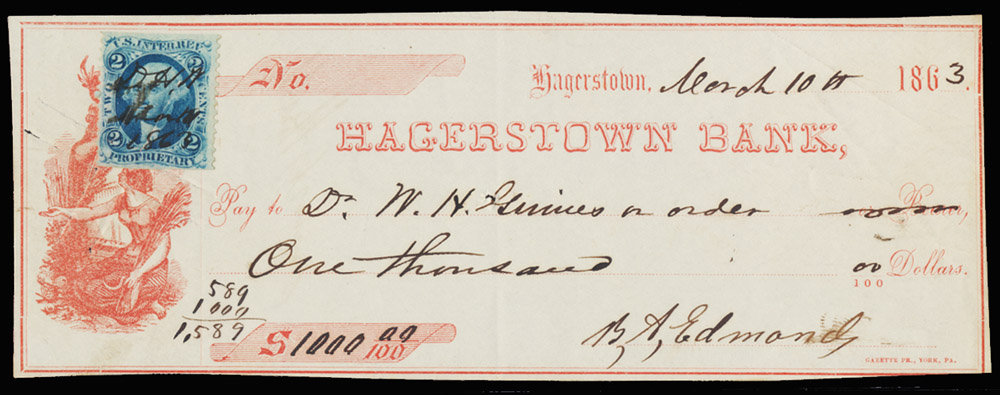 U.S. INTER. REV.
2 2
TWO CENTS
2 2
PROPRIETARY
No.
Hagerstown, March 10th 1863.
HAGERSTOWN BANK,
Pay to Dr. W. H. or order or Bearer,
One thousand 00/100 Dollars.
589
1000
1,589
$1000 00/100
B. A. Edmonds
GAZETTE PR., YORK, PA.